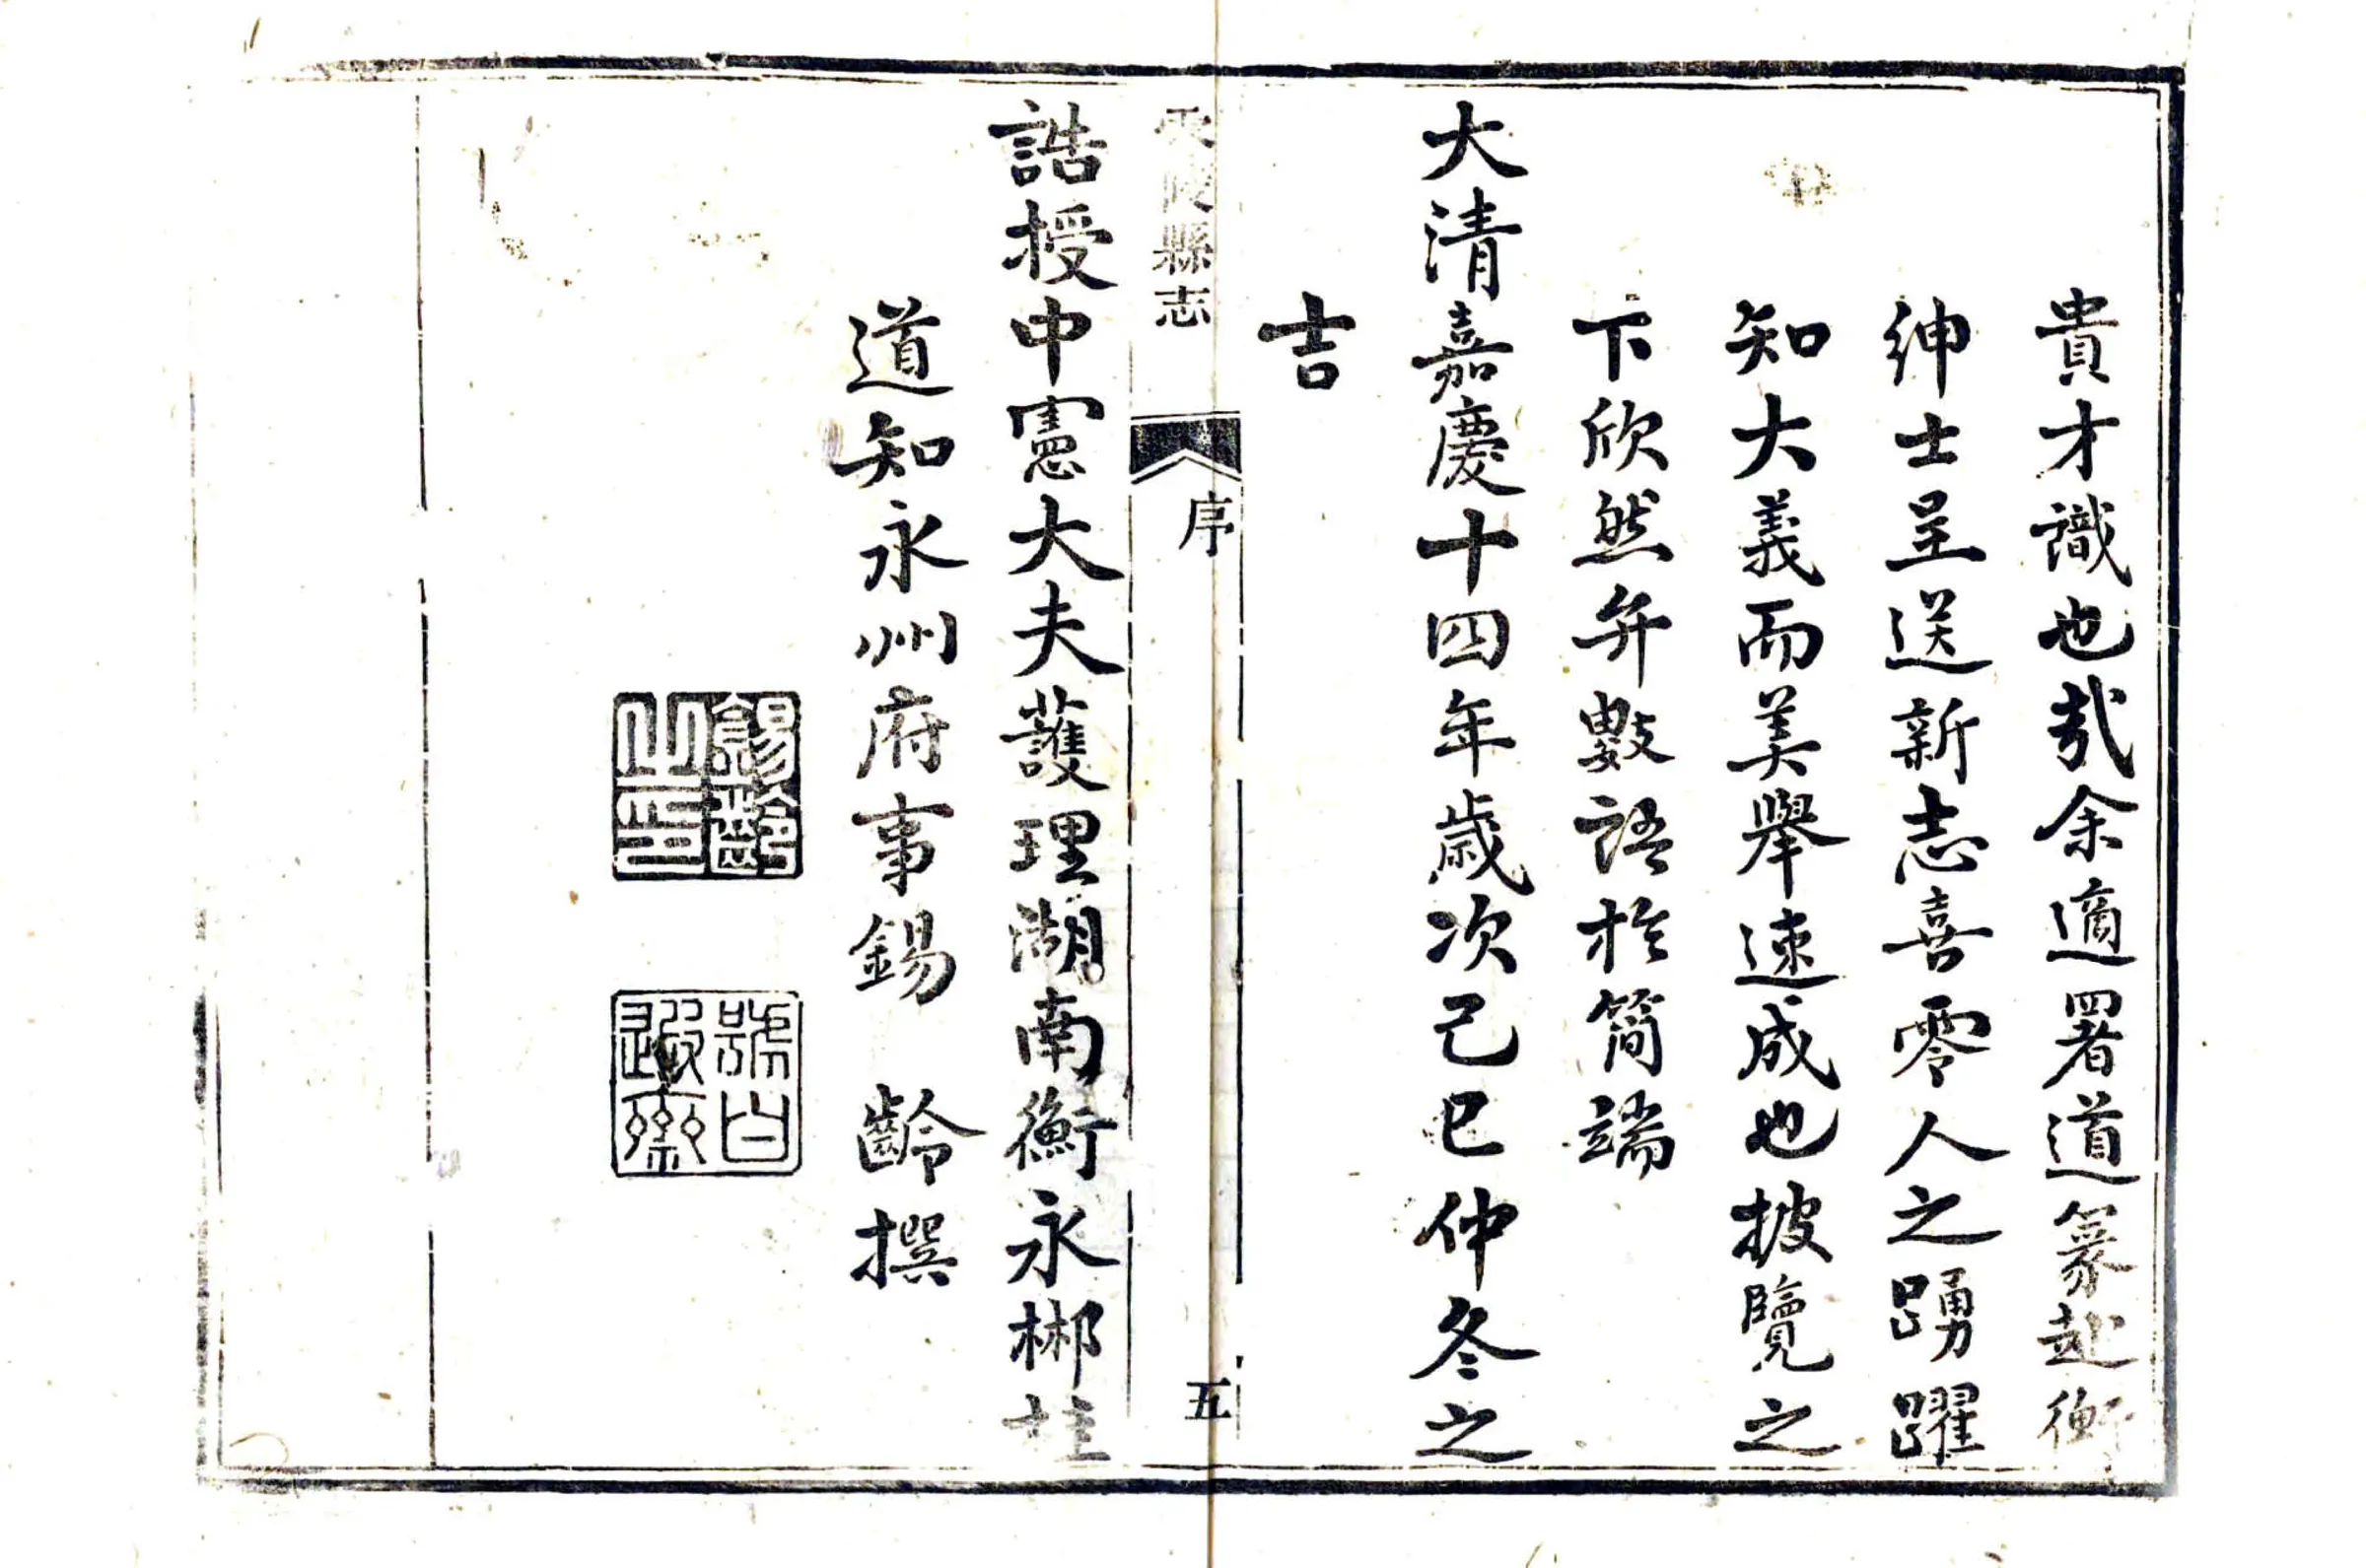 貴才識也哉余適署道篆赴衡
紳士呈送新志喜零人之踴躍
知大義而美舉速成也披覽之
下欣然弁數語於簡端
大清嘉慶十四年歲次己巳仲冬之
吉
零陵縣志
序
五
誥授中憲大夫護理湖南衡永郴桂
道知永州府事錫 齡撰
錫齡之印
號曰退齋